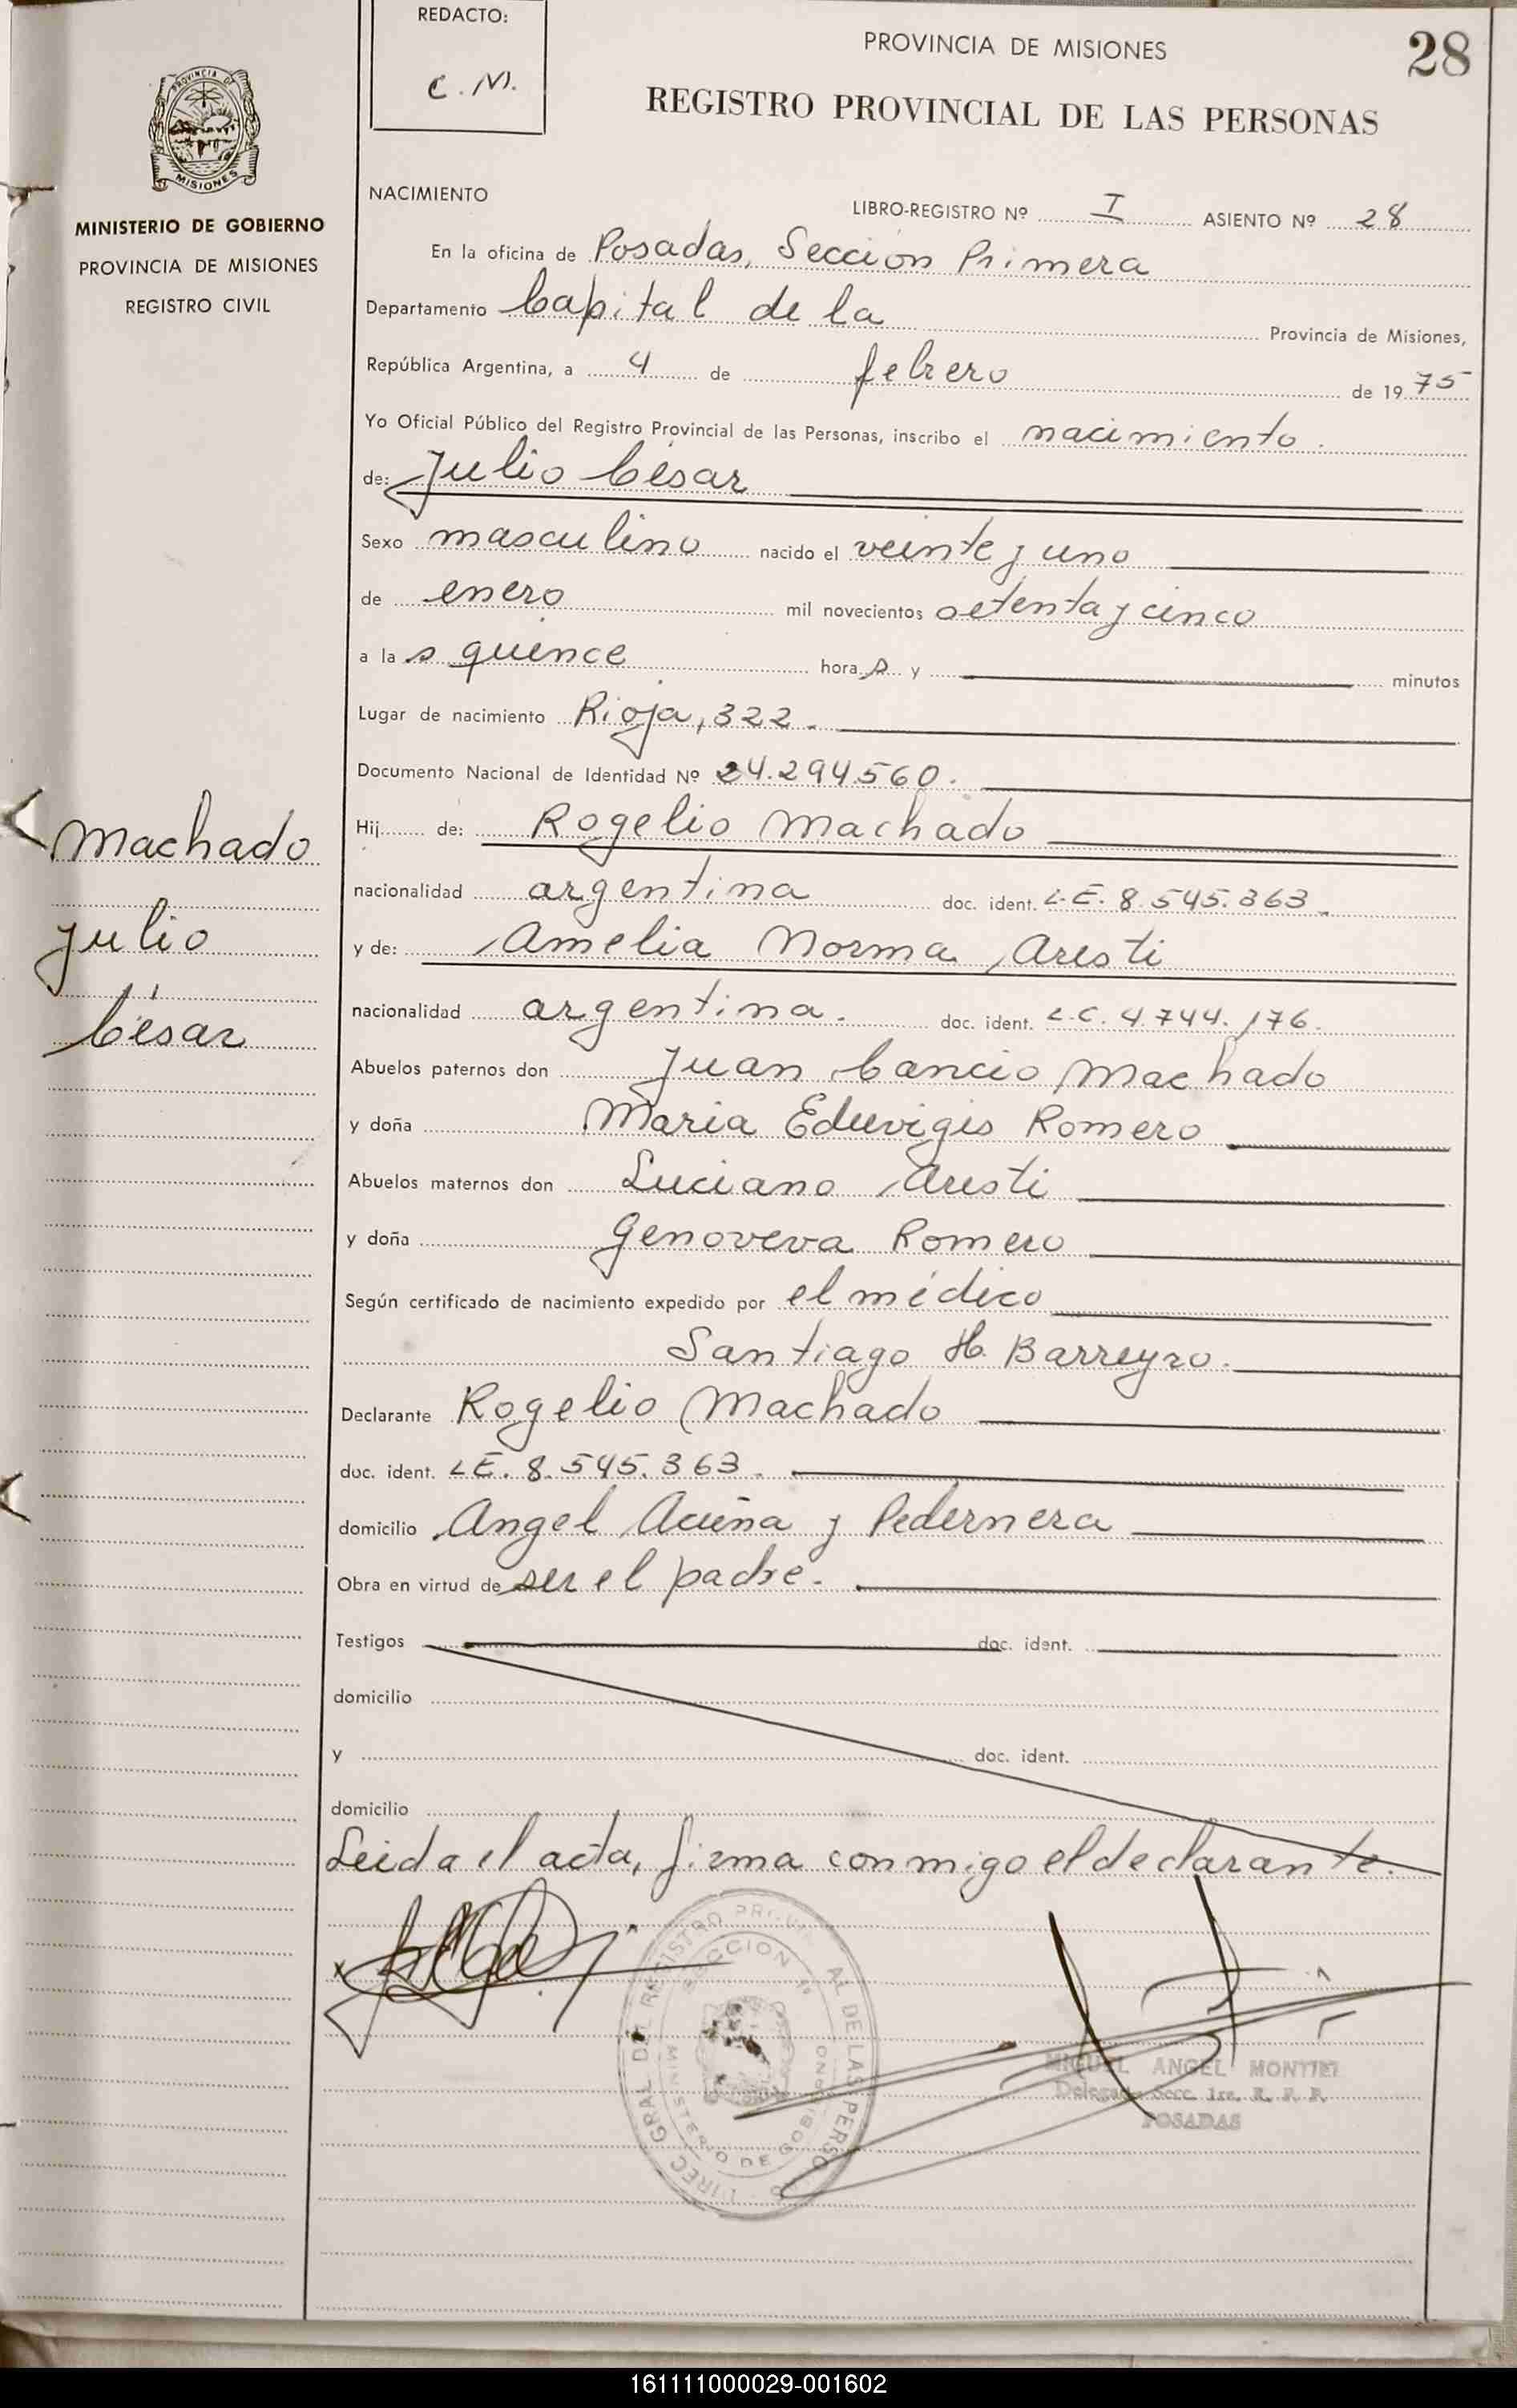 REDACTO:
C. M.
PROVINCIA DE MISIONES
28
REGISTRO PROVINCIAL DE LAS PERSONAS
PROVINCIA DE
MISIONES
MINISTERIO DE GOBIERNO
PROVINCIA DE MISIONES
REGISTRO CIVIL
NACIMIENTO
LIBRO-REGISTRO Nº I ASIENTO Nº 28
En la oficina de Posadas, Sección Primera
Departamento Capital de la Provincia de Misiones,
República Argentina, a 4 de febrero de 1975
Yo Oficial Público del Registro Provincial de las Personas, inscribo el nacimiento.
de: Julio César
Sexo masculino nacido el veinte y uno
de enero mil novecientos setenta y cinco
a las quince horas y minutos
Lugar de nacimiento Rioja, 322.
Documento Nacional de Identidad Nº 24.294.560.
Hij de: Rogelio Machado
nacionalidad argentina doc. ident. L.E. 8.545.363.
y de: Amelia Norma Aresti
nacionalidad argentina. doc. ident. L.C. 4.744.176.
Abuelos paternos don Juan Cancio Machado
y doña Maria Eduvigis Romero
Abuelos maternos don Luciano Aresti
y doña Genoveva Romero
Según certificado de nacimiento expedido por el médico
Santiago H. Barreyro.
Declarante Rogelio Machado
doc. ident. LE. 8.545.363.
domicilio Angel Acuña y Pedernera
Obra en virtud de ser el padre.
Testigos doc. ident.
domicilio
y doc. ident.
domicilio
Leida el acta, firma conmigo el declarante.
Machado
Julio
César
MIGUEL ANGEL MONTIEL
Delegado Secc. 1ra. R. P. P.
POSADAS
161111000029-001602